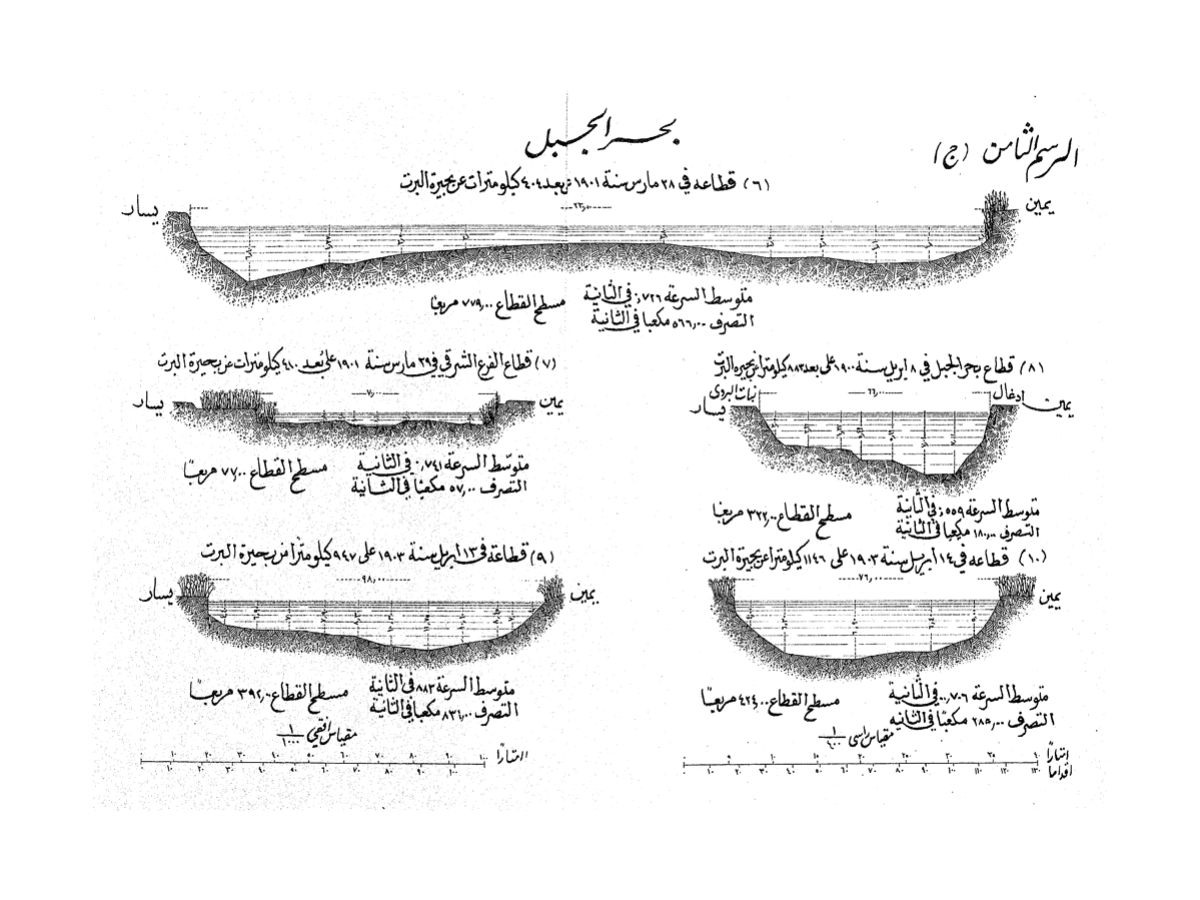 الرسم الثامن (ج)
بحر الجبل
(٦) قطاعه في ٢٨ مارس سنة ١٩٠١ بعد ٤٠٤ كيلومترات عن بحيرة البرت
يسار
٢٣٢٫٠٠
يمين
متوسط السرعة ٠٫٧٢٦ في الثانية
التصرف ٥٦٦٫٠٠ مكعبا في الثانية
مسطح القطاع ٧٧٩٫٠٠ مربعا
(٧) قطاع الفرع الشرقي في ٢٩ مارس سنة ١٩٠١ على بعد ٤١٠ كيلومترات عن بحيرة البرت
يسار
٧٠٫٠٠
يمين
متوسط السرعة ٠٫٧٤١ في الثانية
التصرف ٥٧٫٠٠ مكعبا في الثانية
مسطح القطاع ٧٧٫٠٠ مربعا
(٨) قطاع بحر الجبل في ٨ ابريل سنة ١٩٠٠ على بعد ٨٨٣ كيلومترا عن بحيرة البرت
يسار
نبات البردي
٦٦٫٠٠
ادغال
يمين
متوسط السرعة ٠٫٥٥٩ في الثانية
التصرف ١٨٠٫٠٠ مكعبا في الثانية
مسطح القطاع ٣٢٢٫٠٠ مربعا
(٩) قطاعه في ١٣ ابريل سنة ١٩٠٣ على ٩٤٧ كيلومترا من بحيرة البرت
يسار
٩٨٫٠٠
يمين
متوسط السرعة ٨٨٣ في الثانية
التصرف ٨٣١٫٠٠ مكعبا في الثانية
مسطح القطاع ٣٩٢٫٠٠ مربعا
(١٠) قطاعه في ١٤ ابريل سنة ١٩٠٣ على ١١٤٦ كيلومترا عن بحيرة البرت
٧٦٫٠٠
يمين
متوسط السرعة ٠٫٧٠٦ في الثانية
التصرف ٢٨٥٫٠٠ مكعبا في الثانيه
مسطح القطاع ٤٢٤٫٠٠ مربعا
مقياس افقي ١/١٠٠٠
١٠ ٢٠ ٣٠ ٤٠ ٥٠ ٦٠ ٧٠ ٨٠ ٩٠ ١٠٠ امتارا
١٠ ٢٠ ٣٠ ٤٠ ٥٠ ٦٠ ٧٠ ٨٠ ٩٠ ١٠٠
مقياس راسى
١٠ ١٥ ٢٠ ٢٥ ٣٠ ٣٥ امتارا
١٠ ٢٠ ٣٠ ٤٠ ٥٠ ٦٠ ٧٠ ٨٠ ٩٠ ١٠٠ ١١٠ ١٢٠ ١٣٠ اقداما